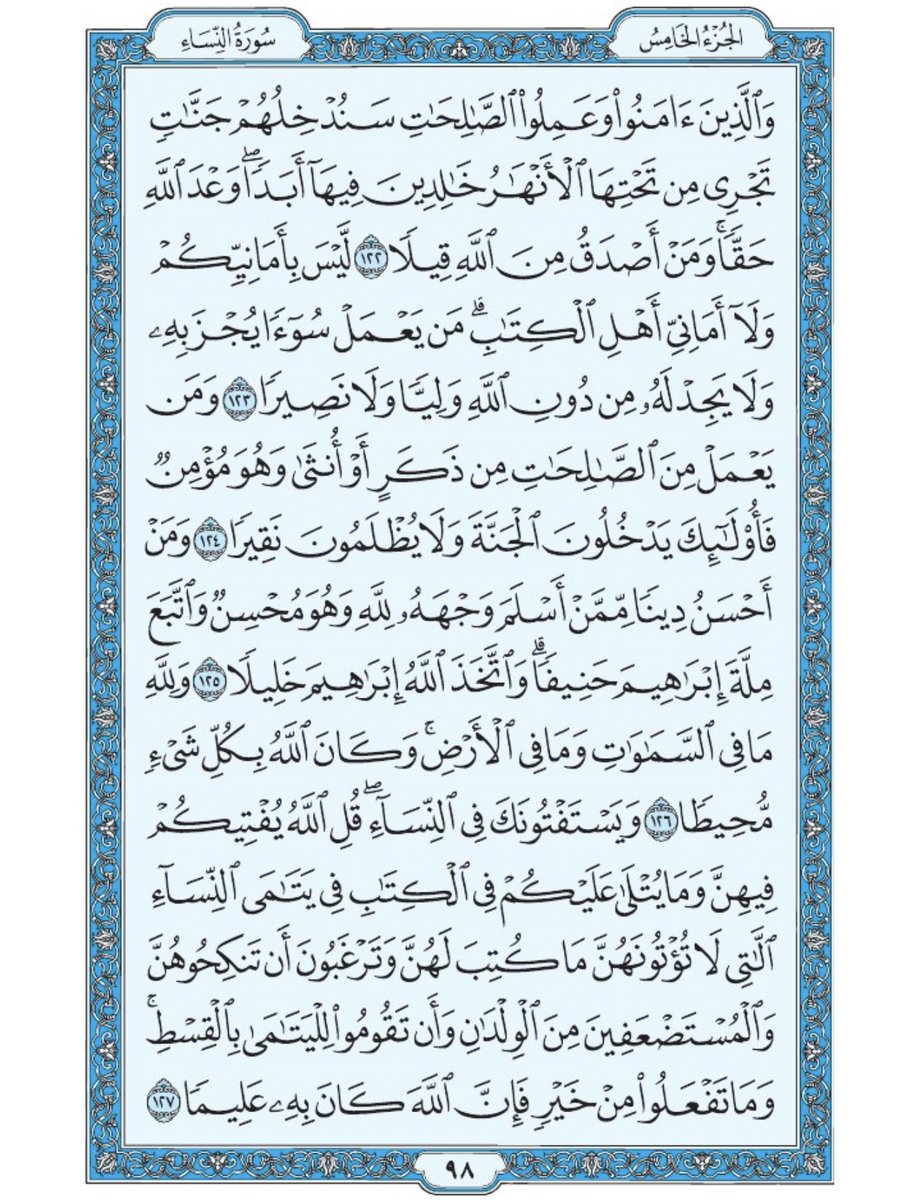 الجُزْءُ الخَامِسُ
سُورَةُ النِّسَاءِ
وَٱلَّذِينَ ءَامَنُواْ وَعَمِلُواْ ٱلصَّٰلِحَٰتِ سَنُدۡخِلُهُمۡ جَنَّٰتٖ
تَجۡرِي مِن تَحۡتِهَا ٱلۡأَنۡهَٰرُ خَٰلِدِينَ فِيهَآ أَبَدٗاۖ وَعۡدَ ٱللَّهِ
حَقّٗاۚ وَمَنۡ أَصۡدَقُ مِنَ ٱللَّهِ قِيلٗا ١٢٢ لَّيۡسَ بِأَمَانِيِّكُمۡ
وَلَآ أَمَانِيِّ أَهۡلِ ٱلۡكِتَٰبِۗ مَن يَعۡمَلۡ سُوٓءٗا يُجۡزَ بِهِۦ
وَلَا يَجِدۡ لَهُۥ مِن دُونِ ٱللَّهِ وَلِيّٗا وَلَا نَصِيرٗا ١٢٣ وَمَن
يَعۡمَلۡ مِنَ ٱلصَّٰلِحَٰتِ مِن ذَكَرٍ أَوۡ أُنثَىٰ وَهُوَ مُؤۡمِنٞ
فَأُوْلَٰٓئِكَ يَدۡخُلُونَ ٱلۡجَنَّةَ وَلَا يُظۡلَمُونَ نَقِيرٗا ١٢٤ وَمَنۡ
أَحۡسَنُ دِينٗا مِّمَّنۡ أَسۡلَمَ وَجۡهَهُۥ لِلَّهِ وَهُوَ مُحۡسِنٞ وَٱتَّبَعَ
مِلَّةَ إِبۡرَٰهِيمَ حَنِيفٗاۗ وَٱتَّخَذَ ٱللَّهُ إِبۡرَٰهِيمَ خَلِيلٗا ١٢٥ وَلِلَّهِ
مَا فِي ٱلسَّمَٰوَٰتِ وَمَا فِي ٱلۡأَرۡضِۚ وَكَانَ ٱللَّهُ بِكُلِّ شَيۡءٖ
مُّحِيطٗا ١٢٦ وَيَسۡتَفۡتُونَكَ فِي ٱلنِّسَآءِۖ قُلِ ٱللَّهُ يُفۡتِيكُمۡ
فِيهِنَّ وَمَا يُتۡلَىٰ عَلَيۡكُمۡ فِي ٱلۡكِتَٰبِ فِي يَتَٰمَى ٱلنِّسَآءِ
ٱلَّٰتِي لَا تُؤۡتُونَهُنَّ مَا كُتِبَ لَهُنَّ وَتَرۡغَبُونَ أَن تَنكِحُوهُنَّ
وَٱلۡمُسۡتَضۡعَفِينَ مِنَ ٱلۡوِلۡدَٰنِ وَأَن تَقُومُواْ لِلۡيَتَٰمَىٰ بِٱلۡقِسۡطِۚ
وَمَا تَفۡعَلُواْ مِنۡ خَيۡرٖ فَإِنَّ ٱللَّهَ كَانَ بِهِۦ عَلِيمٗا ١٢٧
٩٨